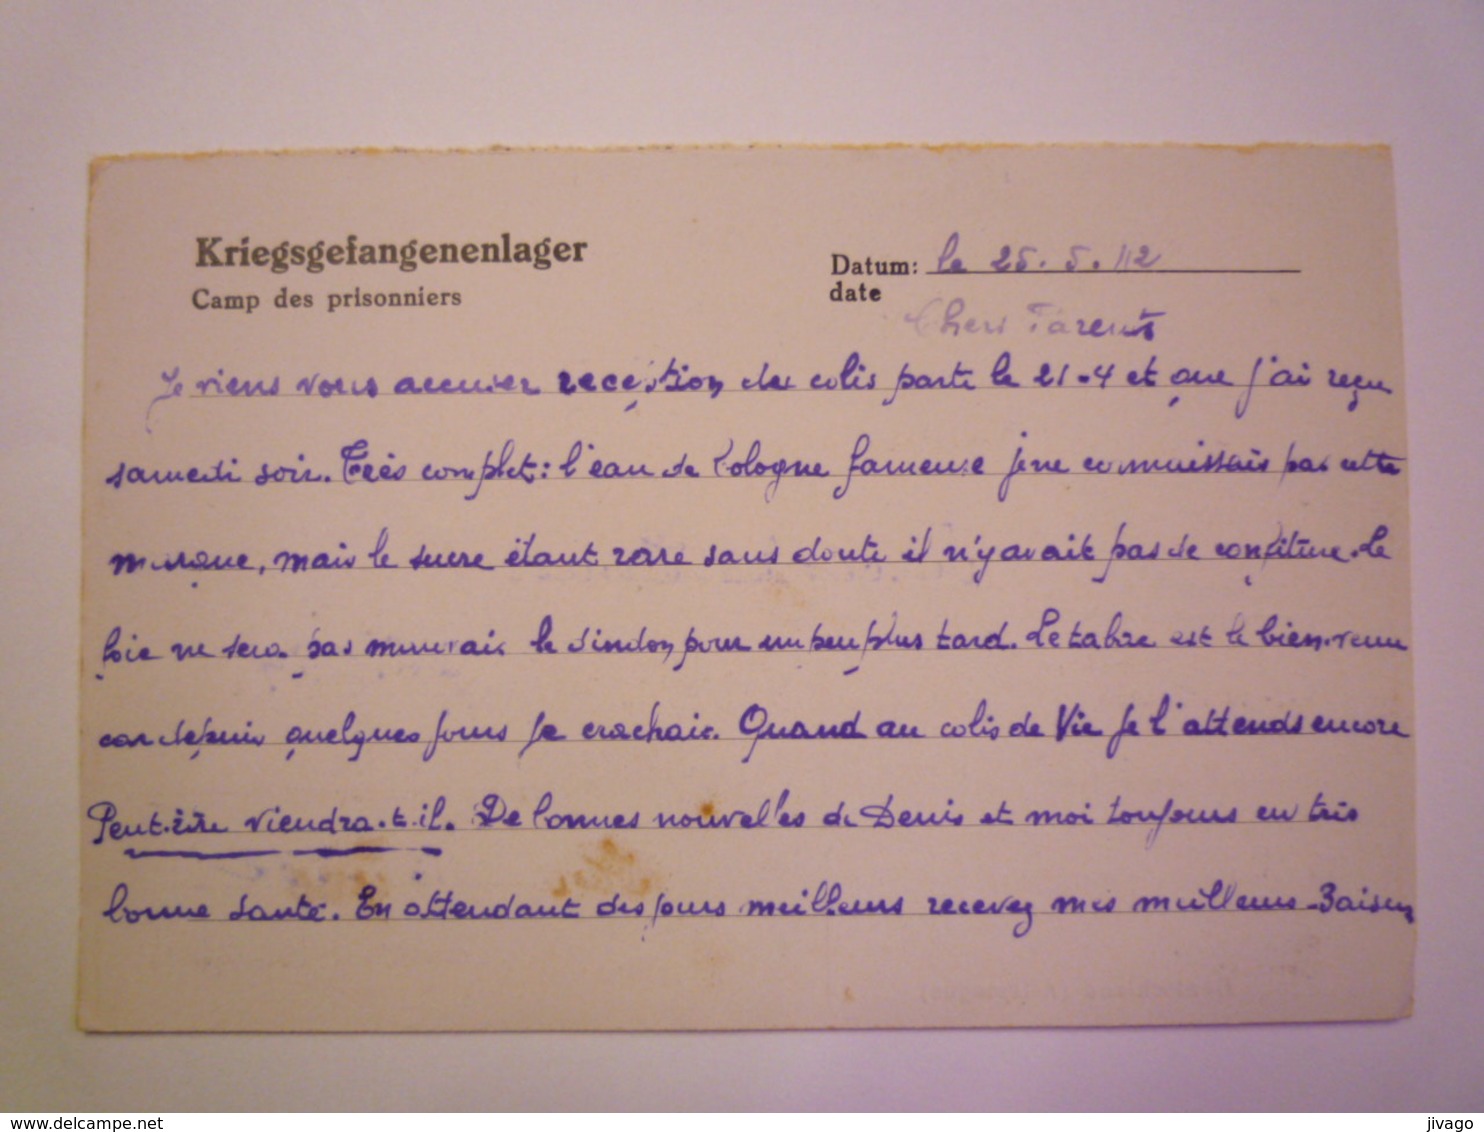 Kriegsgefangenenlager
Camp des prisonniers
Datum: le 25.5.42
date
Chers Parents
Je viens vous accuser reception du colis parti le 21-4 et que j'ai reçu
samedi soir. Très complet: l'eau de Cologne fameuse je ne connaissais pas cette
marque, mais le sucre étant rare sans doute il n'y avait pas de confiture. Le
foie ne sera pas mauvais le dindon pour un peu plus tard. Le tabac est le bienvenu
car depuis quelques jours je crachais. Quand au colis de Vie je l'attends encore
Peut-être viendra-t-il. De bonnes nouvelles de Denis et moi toujours en très
bonne santé. En attendant des jours meilleurs recevez mes meilleurs Baisers
delcampe.net
jivago